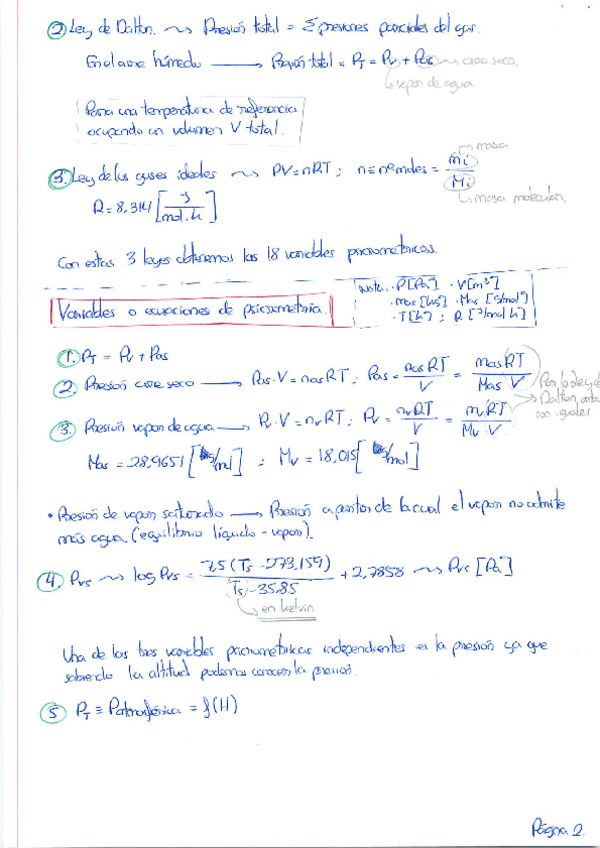 ② Ley de Dalton. ⇝ Presión total = Σ presiones parciales del gas.
En el aire húmedo → Presión total = PT = Pv + Pas → aire seco.
↳ vapor de agua
Para una temperatura de referencia
ocupando un volumen V total.
→ masa
③ Ley de los gases ideales ⇝ PV = nRT ; n ≡ nº moles = mi / Mi
↳ masa molecular.
R = 8,314 [J / mol.k]
Con estas 3 leyes obtenemos las 18 variables psicrométricas.
Nota: · P[Pa] · V[m³]
· mas [kg] · Mas [g/mol]
· T[k] ; R [J/mol k]
Variables o ecuaciones de psicrometría.
①. PT = Pv + Pas
②. Presión aire seco → Pas · V = nas RT ; Pas = nas RT / V = mas RT / Mas V
Por la ley de
Dalton, ambos
son iguales
③. Presión vapor de agua → Pv · V = nv RT ; Pv = nv RT / V = mv RT / Mv · V
Mas = 28,9651 [kg/mol] ; Mv = 18,015 [kg/mol]
• Presión de vapor saturado → Presión a partir de la cual el vapor no admite
más agua. (equilibrio líquido - vapor).
④. Pvs ⇝ log Pvs = 7,5 (Ts - 273,159) / Ts - 35,85 + 2,7858 ⇝ Pvs [Pa]
↳ en kelvin
Una de las tres variables psicrométricas independientes es la presión ya que
sabiendo la altitud podemos conocer la presión.
⑤ PT ≡ Patmosférica = f(H)
Página 2.